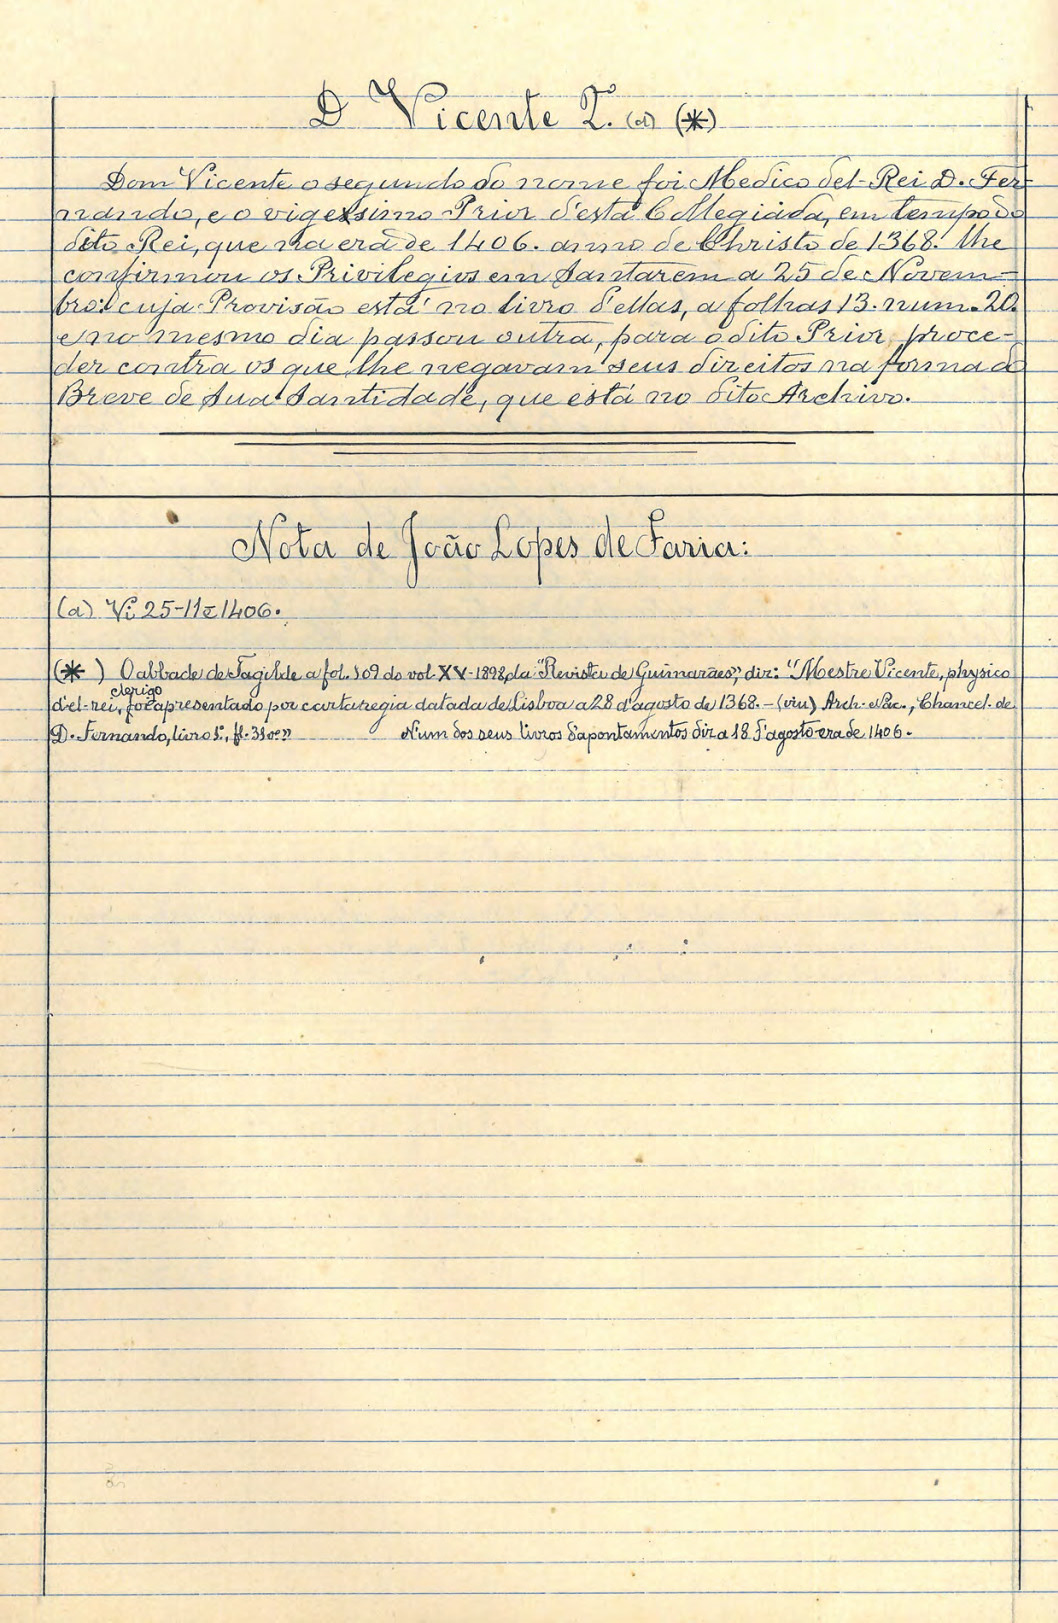 D Vicente 2. (a) (*)
Dom Vicente o segundo do nome foi Medico del-Rei D. Fer-
nando, e o vigessimo Prior d'esta Collegiada, em tempo do
dito Rei, que na era de 1406. anno de Christo de 1368. lhe
confirmou os Privilegios em Santarem a 25 de Novem-
bro: cuja Provisão está no livro d'ellas, a folhas 13. num. 20.
e no mesmo dia passou outra, para o dito Prior proce-
der contra os que lhe negavam seus direitos na forma do
Breve de Sua Santidade, que está no dito Archivo.
Nota de João Lopes de Faria:
(a) Vi 25-11-1406.
(*) O abbade de Tagilde a fol. 109 do vol. XV-1898, da "Revista de Guimarães", diz: "Mestre Vicente, physico
clerigo
d'el-rei, foi apresentado por carta regia datada de Lisboa a 28 d'agosto de 1368. - (viu) Arch. Nac., Chancel. de
D. Fernando, livro 1º, fl. 31 Num dos seus livros d'apontamentos diz a 18 d'agosto era de 1406.